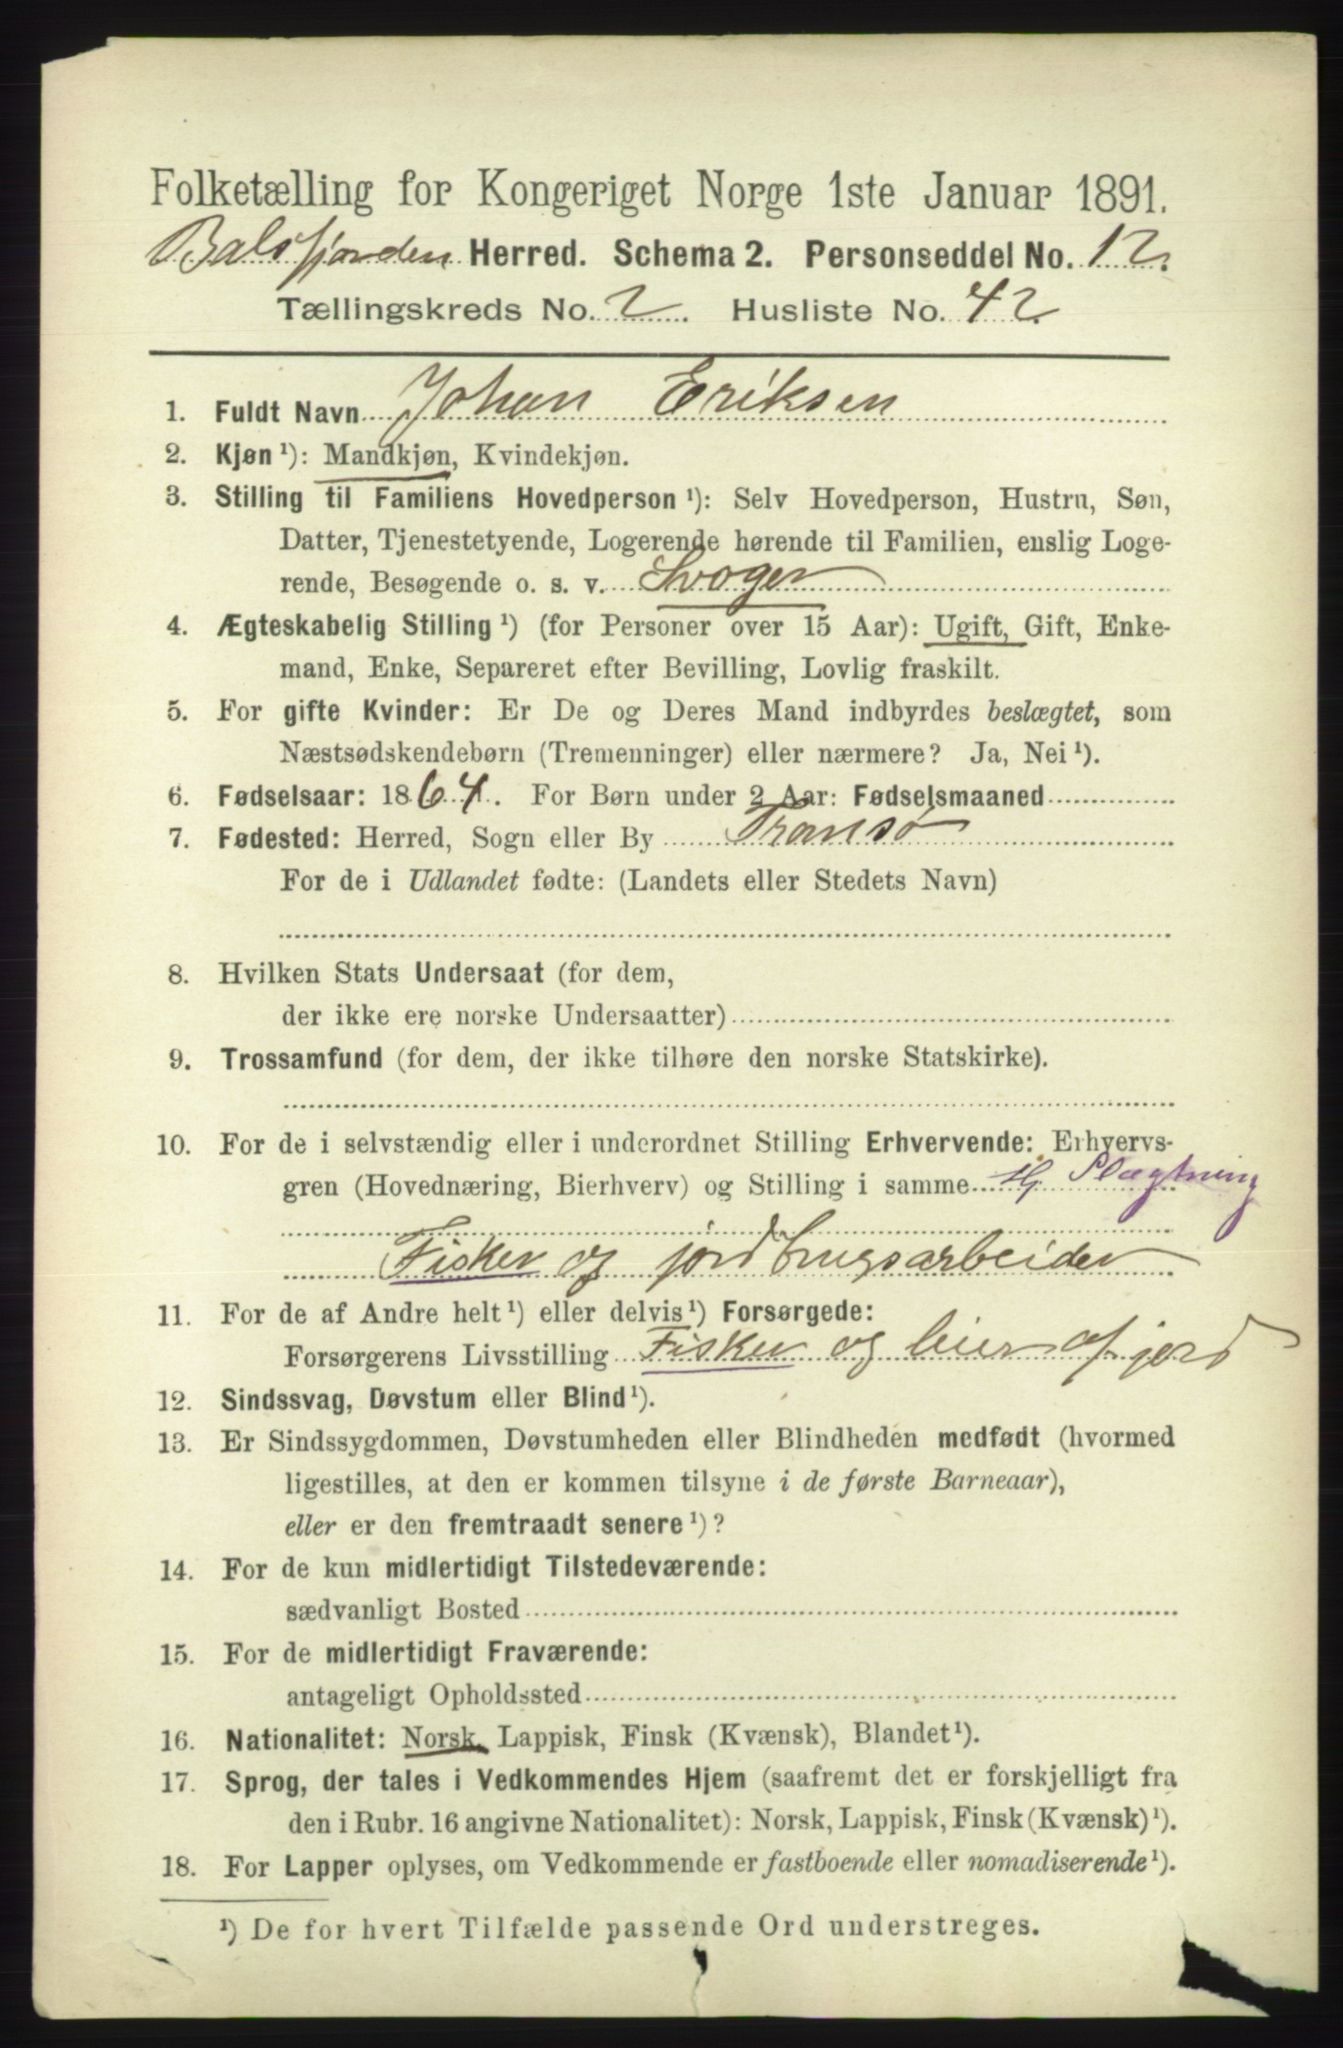 Folketælling for Kongeriget Norge 1ste Januar 1891.
Balsfjorden Herred. Schema 2. Personseddel No. 12.
Tællingskreds No. 2. Husliste No. 42.
1. Fuldt Navn Johan Eriksen
2. Kjøn ¹): Mandkjøn, Kvindekjøn.
3. Stilling til Familiens Hovedperson ¹): Selv Hovedperson, Hustru, Søn,
Datter, Tjenestetyende, Logerende hørende til Familien, enslig Loge-
rende, Besøgende o. s. v. Svoger
4. Ægteskabelig Stilling ¹) (for Personer over 15 Aar): Ugift, Gift, Enke-
mand, Enke, Separeret efter Bevilling, Lovlig fraskilt.
5. For gifte Kvinder: Er De og Deres Mand indbyrdes beslægtet, som
Næstsødskendebørn (Tremenninger) eller nærmere? Ja, Nei ¹).
6. Fødselsaar: 1864. For Børn under 2 Aar: Fødselsmaaned
7. Fødested: Herred, Sogn eller By Tromsø
For de i Udlandet fødte: (Landets eller Stedets Navn)
8. Hvilken Stats Undersaat (for dem,
der ikke ere norske Undersaatter)
9. Trossamfund (for dem, der ikke tilhøre den norske Statskirke).
10. For de i selvstændig eller i underordnet Stilling Erhvervende: Erhvervs-
gren (Hovednæring, Bierhverv) og Stilling i samme Hj Slægtning
Fisker og jordbrugsarbeider
11. For de af Andre helt ¹) eller delvis ¹) Forsørgede:
Forsørgerens Livsstilling Fisker og leier af jord
12. Sindssvag, Døvstum eller Blind ¹).
13. Er Sindssygdommen, Døvstumheden eller Blindheden medfødt (hvormed
ligestilles, at den er kommen tilsyne i de første Barneaar),
eller er den fremtraadt senere ¹)?
14. For de kun midlertidigt Tilstedeværende:
sædvanligt Bosted
15. For de midlertidigt Fraværende:
antageligt Opholdssted
16. Nationalitet: Norsk, Lappisk, Finsk (Kvænsk), Blandet ¹).
17. Sprog, der tales i Vedkommendes Hjem (saafremt det er forskjelligt fra
den i Rubr. 16 angivne Nationalitet): Norsk, Lappisk, Finsk (Kvænsk) ¹).
18. For Lapper oplyses, om Vedkommende er fastboende eller nomadiserende ¹).
¹) De for hvert Tilfælde passende Ord understreges.